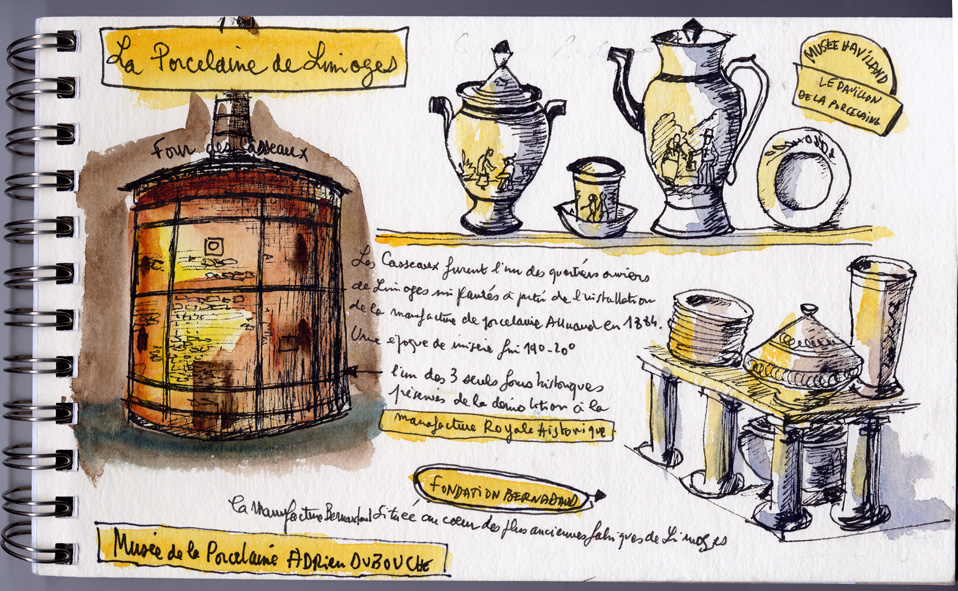 La Porcelaine de Limoges
Four des Casseaux
MUSÉE HAVILAND
LE PAVILLON
DE LA PORCELAINE
Les Casseaux furent l'un des quartiers ouvriers
de Limoges implantés à partir de l'installation
de la manufacture de porcelaine Alluaud en 1884.
Une époque de misère fin 190-20°
l'un des 3 seuls fours historiques
préservés de la démolition à la
manufacture Royale Historique
FONDATION BERNARDAUD
La Manufacture Bernardaud située au cœur des plus anciennes fabriques de Limoges
Musée de la Porcelaine ADRIEN DUBOUCHE